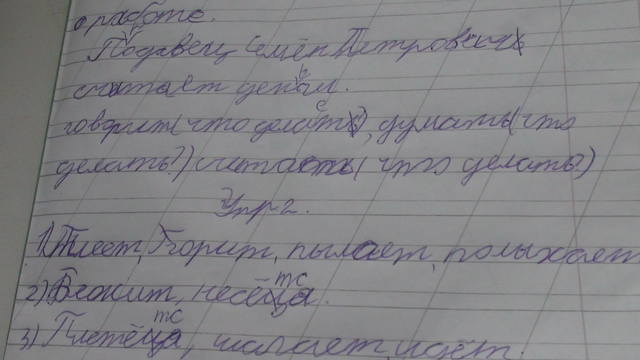 о работе.
Продавец Семён Петрович
считает деньги.
говорит (что делает?), думать (что
делать?) считать (что делать)
Упр 2.
1) Тлеет, Горит, пылает, полыхает
2) Бежит, несётса.
3) Плетётса, шагает, идёт.